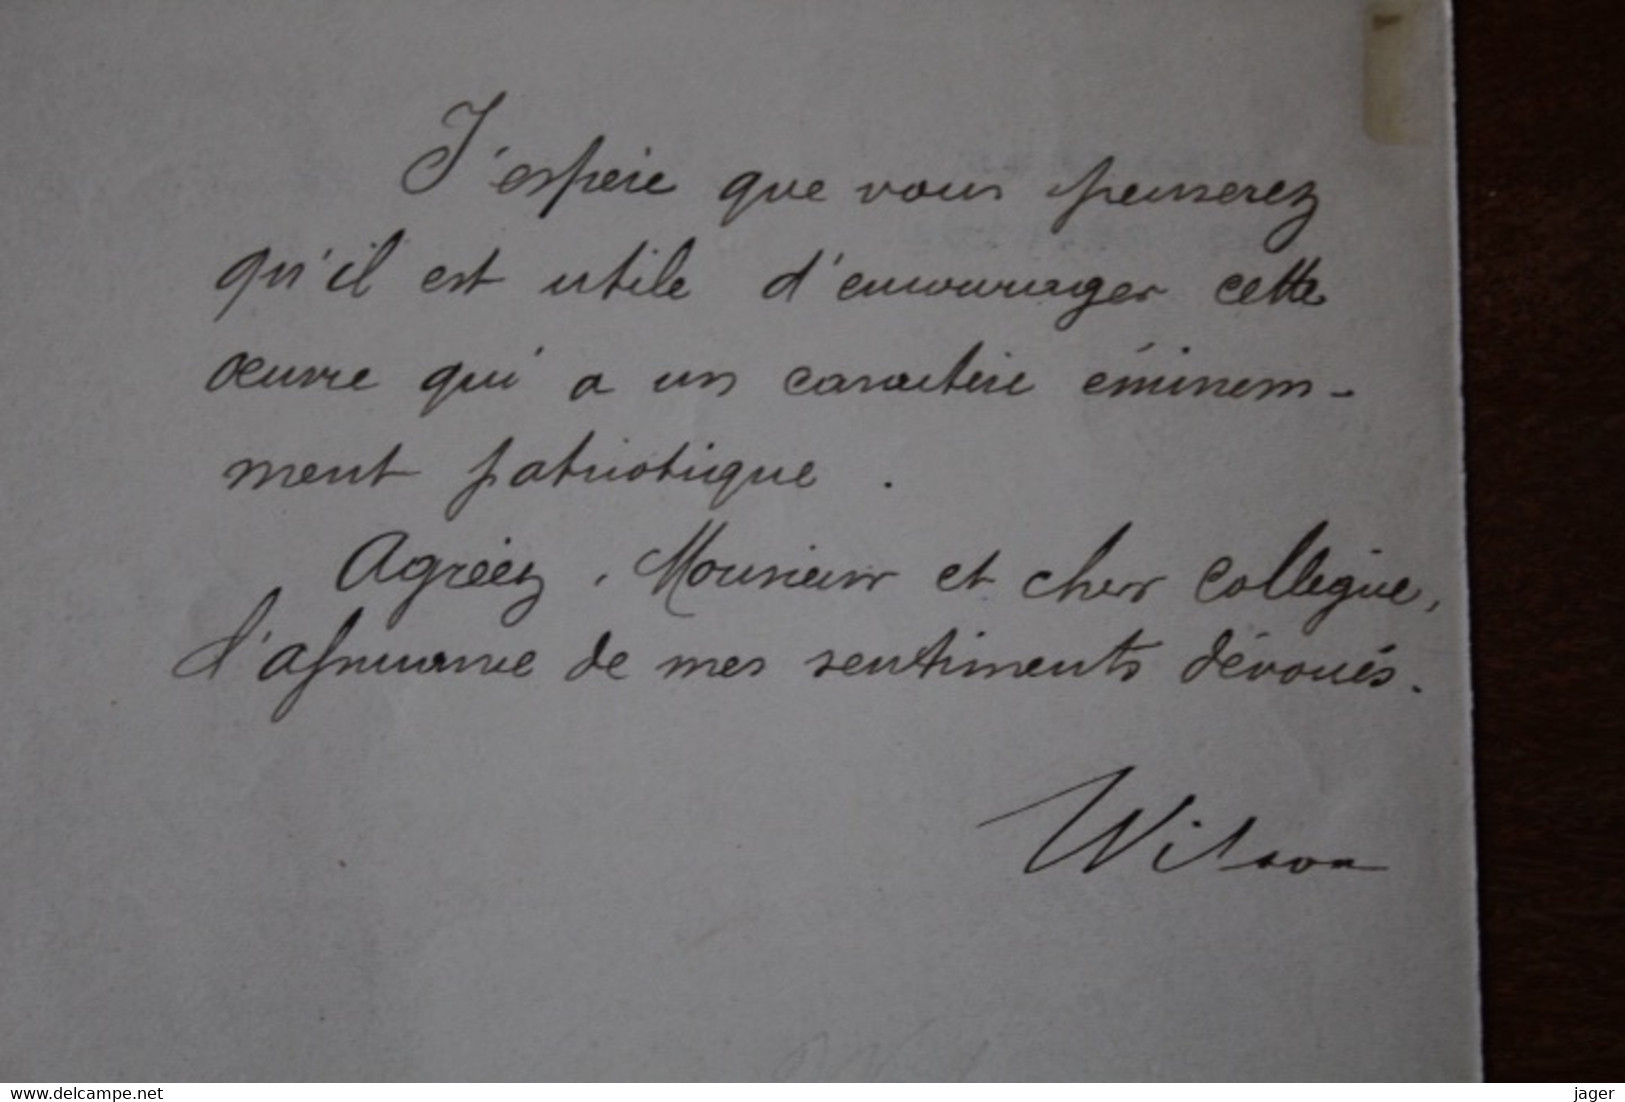 J'espère que vous penserez
qu'il est utile d'encourager cette
œuvre qui a un caractère éminem-
ment patriotique.
Agréez, Monsieur et cher Collègue,
l'assurance de mes sentiments dévoués.
Wilson
www.delcampe.net
jager